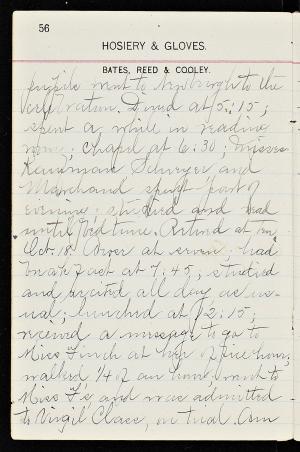 56
HOSIERY & GLOVES.
BATES, REED & COOLEY.
pupils went to Newburgh to the
celebration. Dined at 5:15;
spent a while in reading
room; chapel at 6:30; Misses
and
Marchand spent part of
evening; studied and read
until bedtime. Retired at ten.
Oct. 18. Arose at seven; had
breakfast at 7:45; studied
and recited all day as us-
ual; lunched at 12:15;
received a message to go to
Miss Finch at her office hour;
walked 1/4 of an hour; went to
Miss F's and was admitted
to Virgil Class, on trial. Am